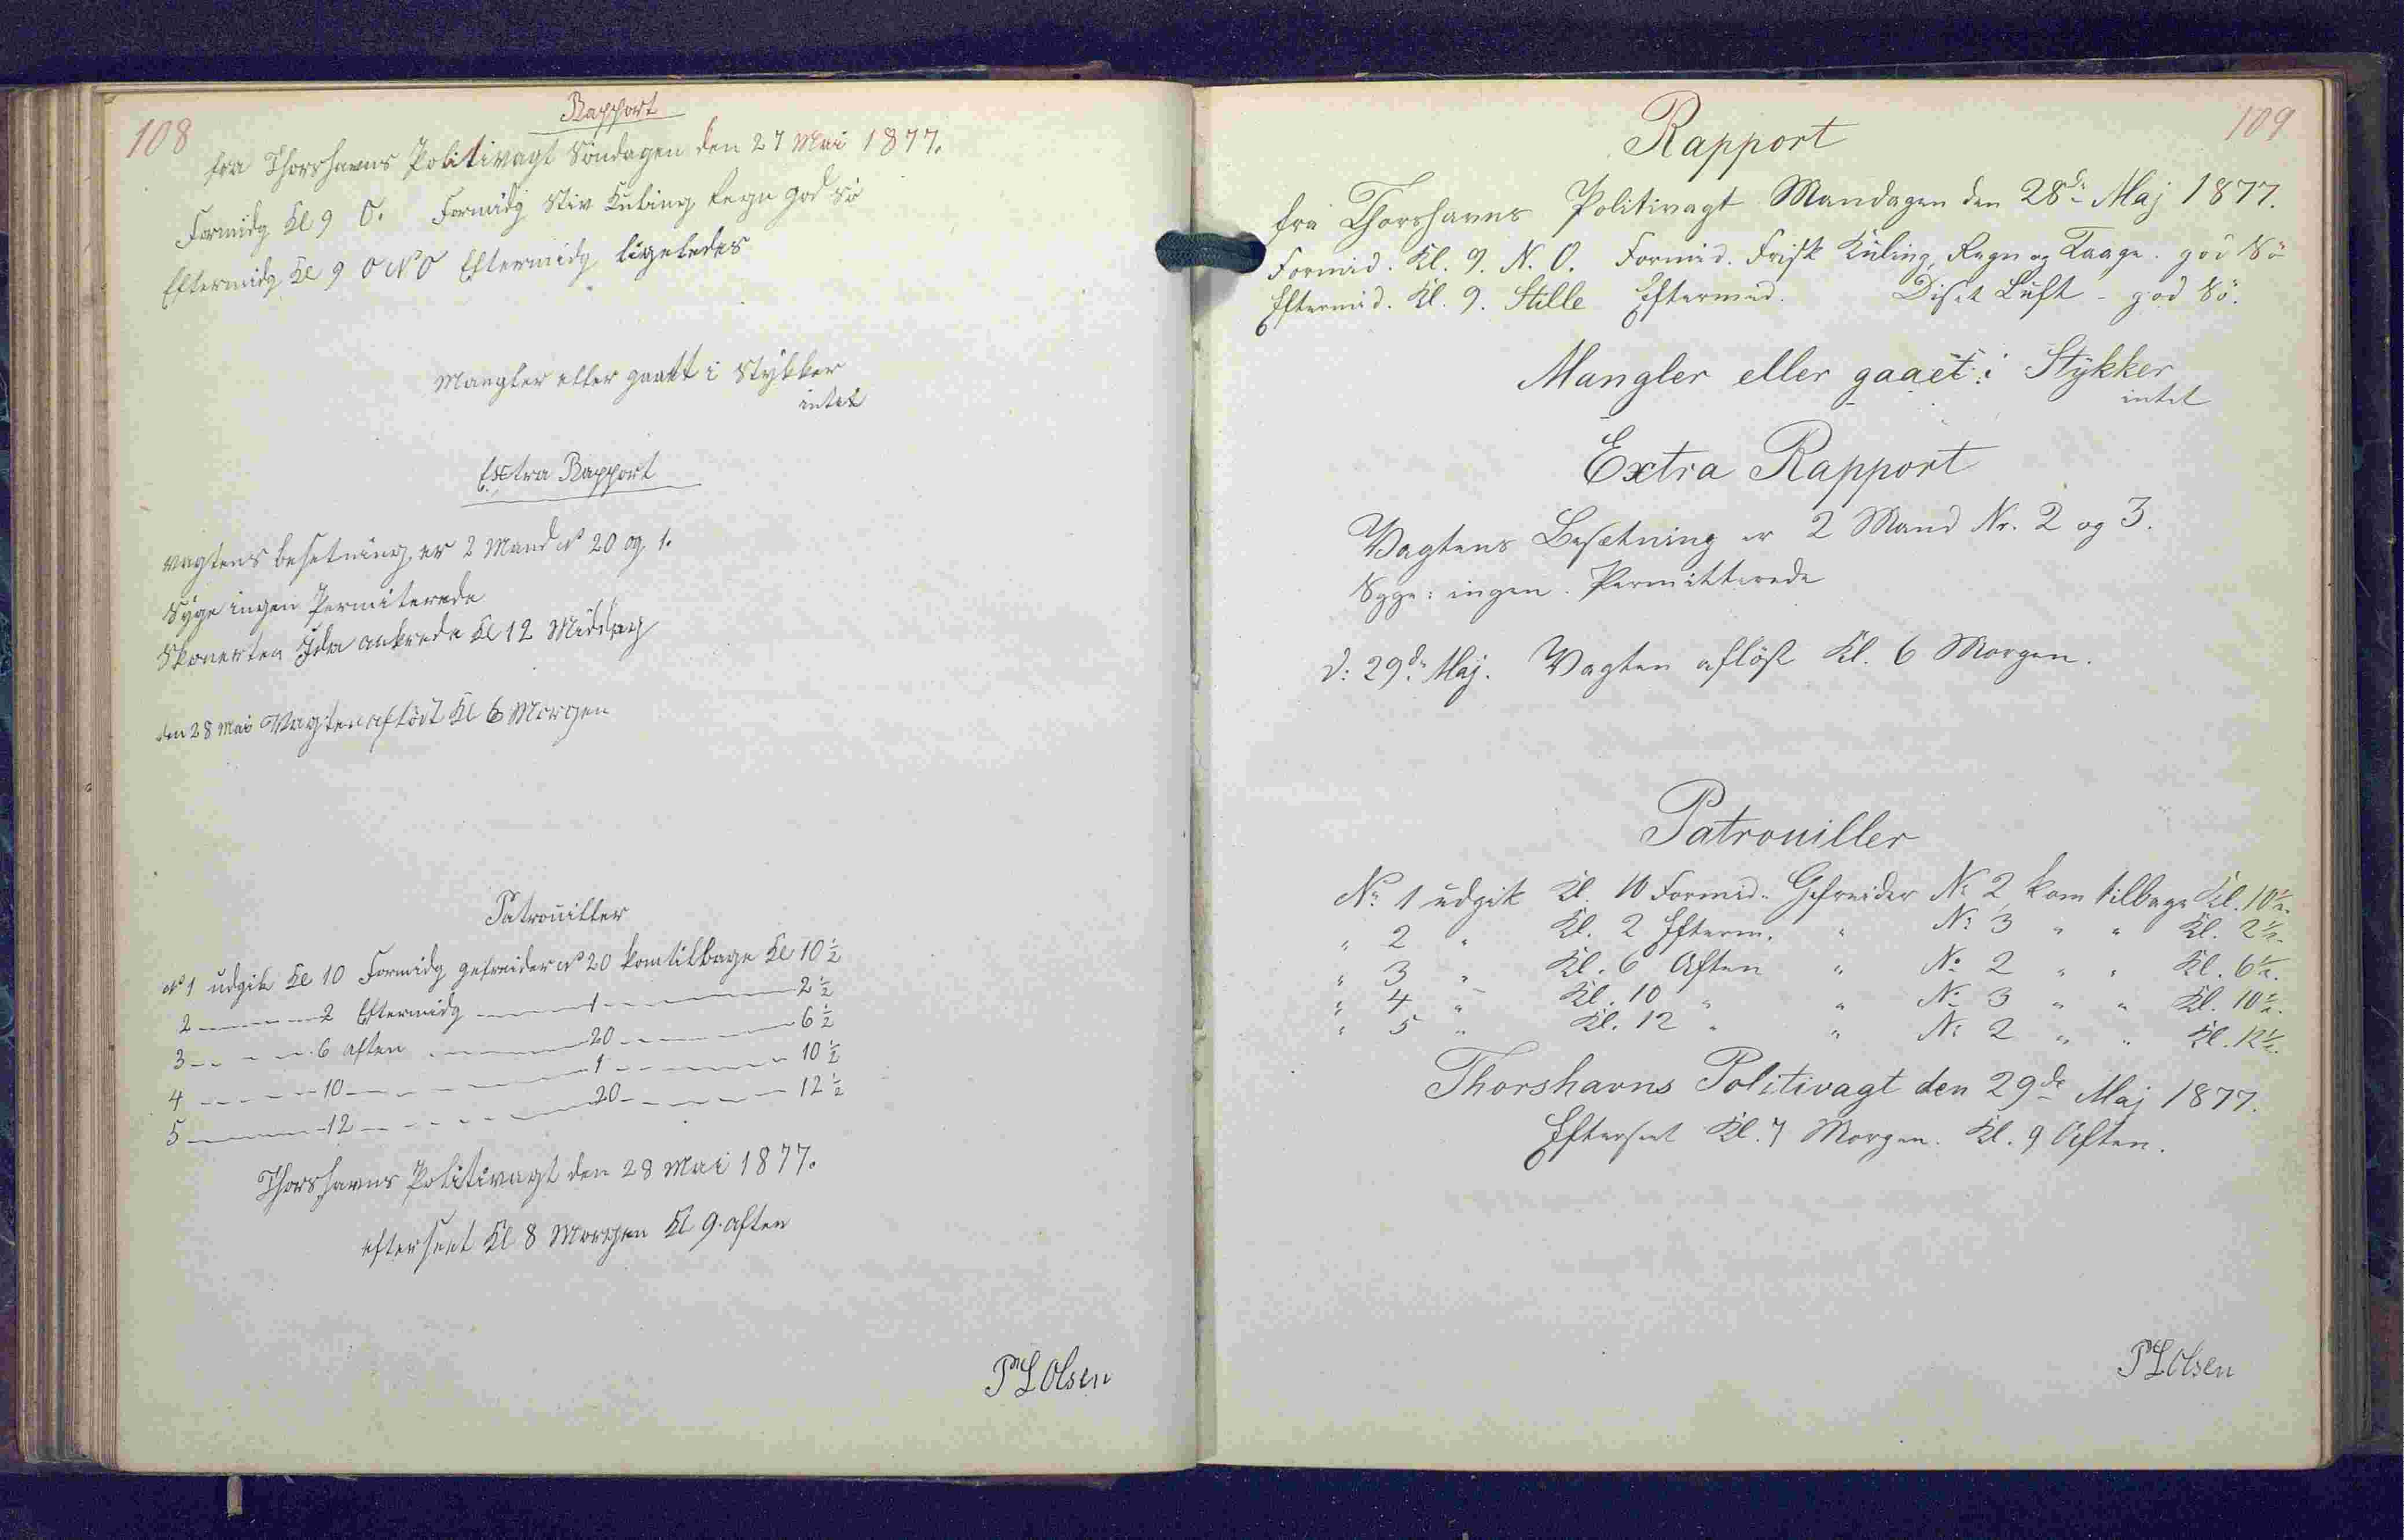 108
Rapport
fra Thorshavns Politivagt Söndagen den 27 Mai 1877.
Formidg Kl 9 O. Formidg Stiv Kuling Regn god Sö
Eftermidg Kl 9 O N O Eftermidg ligeledes
Mangler eller gaatt i Stykker
intet
Extra Rapport
Vagtens besetning er 2 Mand No 20 og 1.
Syge ingen Permiterede
Skonerten Ida ankrede Kl 12 Middag
den 28 Mai Vagten aflöst Kl 6 Morgen
Patrouiller
No 1 udgik Kl 10 Formidg gefreider No 20 kom tilbage Kl 10 1/2
2 — 2 Eftermidg — 1 — 2 1/2
3 — 6 aften — 20 — 6 1/2
4 — 10 — 1 — 10 1/2
5 — 12 — 20 — 12 1/2
Thorshavns Politivagt den 28 Mai 1877.
efterseet Kl 8 Morgen Kl 9. aften
P L Olsen
109
Rapport
fra Thorshavns Politivagt Mandagen den 28de Maj 1877.
Formid. Kl. 9. N. O. Formid. Frisk Kuling, Regn og Taage. god Sö
Eftermid. Kl. 9. Stille Eftermid. Diset Luft - god Sö.
Mangler eller gaaet i Stykker
intet
Extra Rapport
Vagtens Besætning er 2 Mand Nr. 2 og 3.
Syge: ingen. Permitterede
D: 29de Maj. Vagten aflöst Kl. 6 Morgen.
Patrouiller
No 1 udgik Kl. 10 Formid. Gefreider No 2 kom tilbage Kl. 10 1/2.
" 2 " Kl. 2 Efterm. " No 3 " " Kl. 2 1/2.
" 3 " Kl. 6 Aften " No 2 " " Kl. 6 1/2.
" 4 " Kl. 10 " " No 3 " " Kl. 10 1/2.
" 5 " Kl. 12 " " No 2 " " Kl. 12 1/2.
Thorshavns Politivagt den 29de Maj 1877.
Efterseet Kl. 7 Morgen. Kl. 9 Aften.
P L Olsen